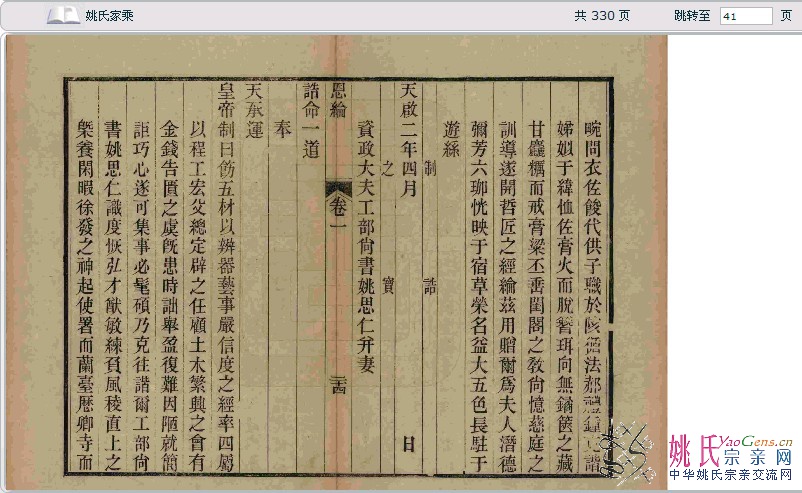 姚氏家乘
共 330 页
跳转至 41 页
畹問衣佐餕代供子職於陔循法郝鍾
娣姒于緯恤佐膏火而脫簪珥向無鐍篋之藏
甘麤糲而戒膏粱丕嗇閨閤之敎尙憶慈庭之
訓導遂開哲匠之經綸茲用贈爾爲夫人潛德
彌芳六珈恍映于宿草榮名益大五色長駐于
遊絲
制 誥
天啟二年四月 日
之 寶
資政大夫工部尙書姚思仁幷妻
恩綸 卷一 三四
誥命一道
奉
天承運
皇帝制曰飭五材以辨器藝事嚴信度之經率四屬
以程工宏父總定辟之任顧土木繁興之會有
金錢告匱之虞旣患時詘舉盈復難因陋就簡
詎巧心遂可集事必髦碩乃克往諧爾工部尙
書姚思仁識度恢弘才猷敏練負風稜直上之
槩養閑暇徐發之神起使署而蘭臺歷卿寺而
姚氏YaoGens.cn
宗亲网
中华姚氏宗亲交流网